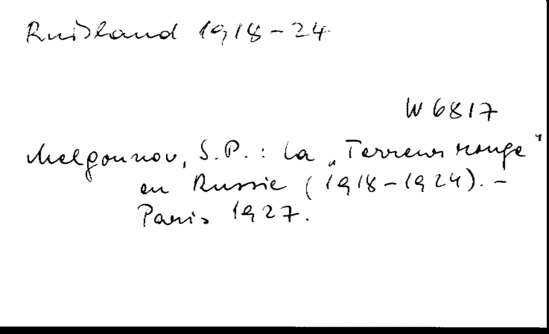 Rußland 1918-24
W 6817
Melgounov, S.P.: La „Terreur rouge"
en Russie (1918-1924). -
Paris 1927.